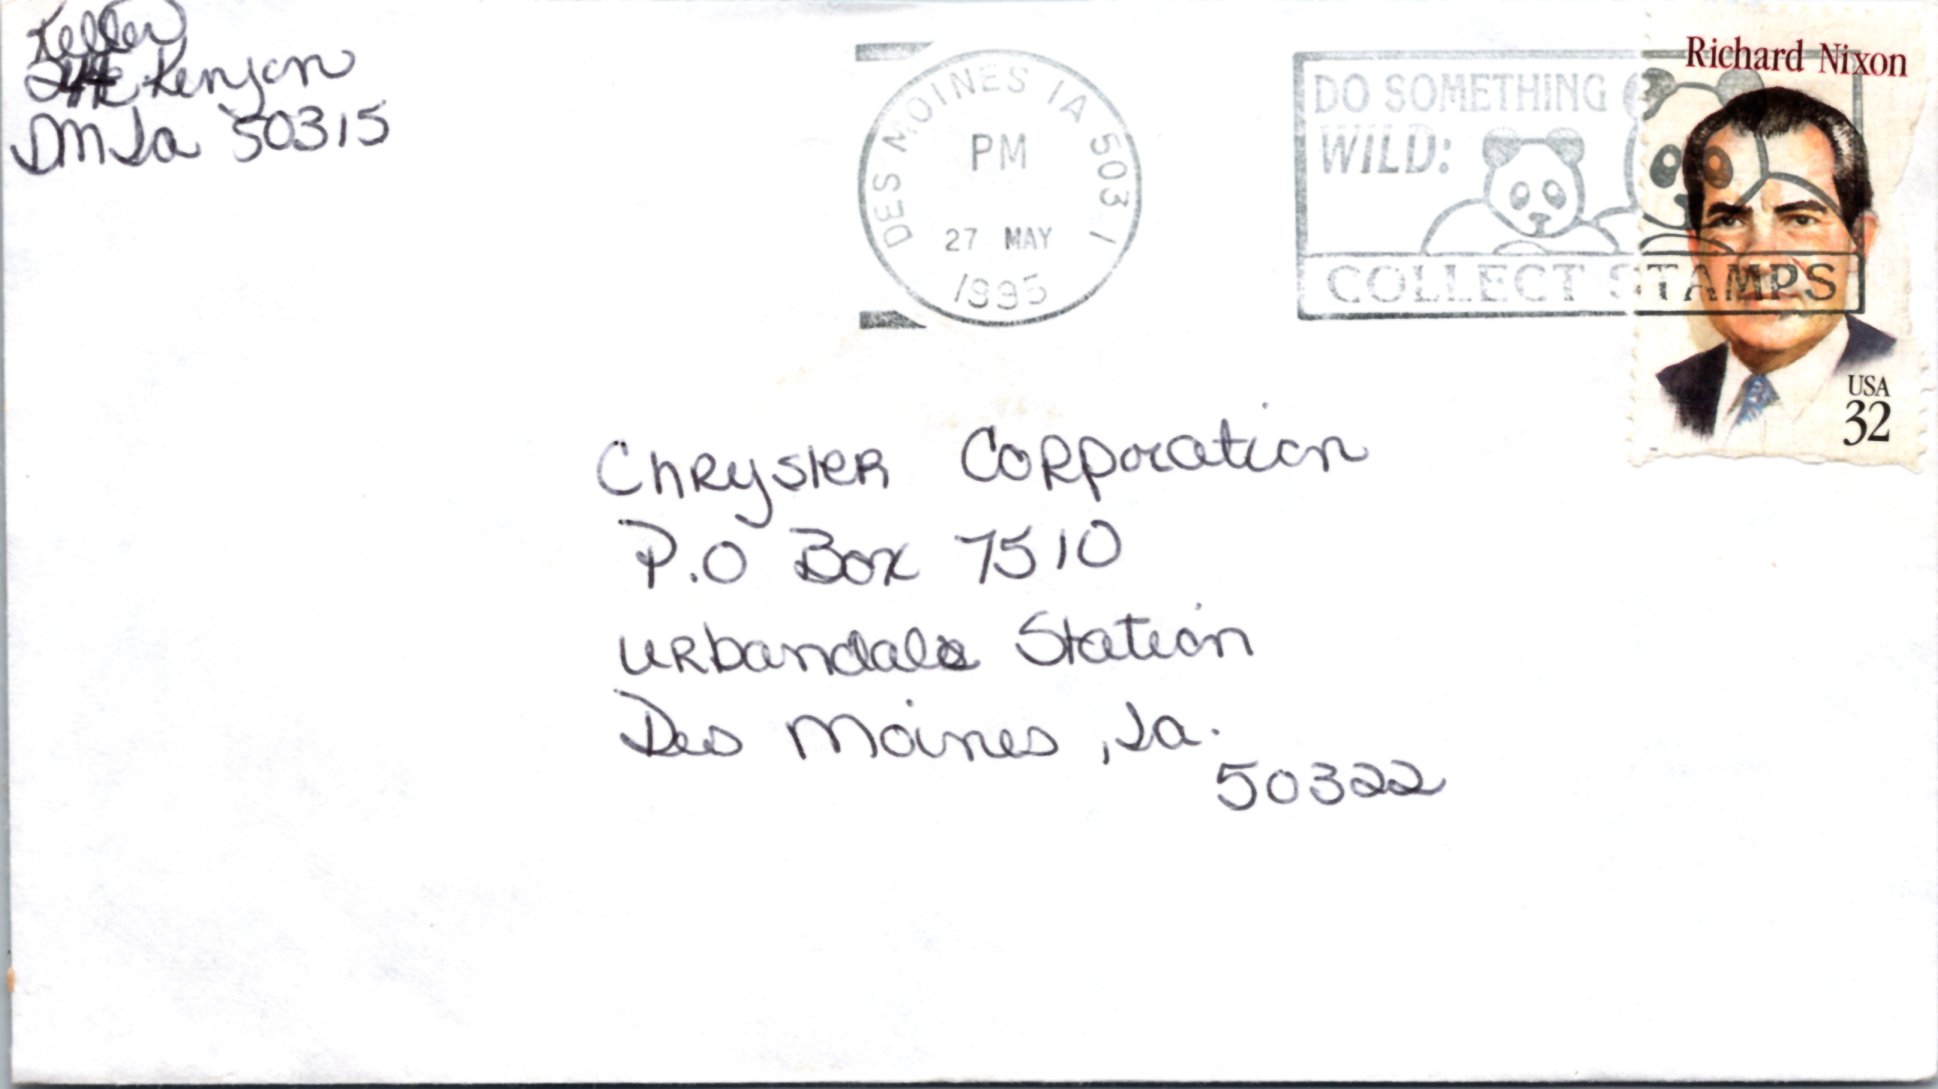 Keller
Kenyon
DM Ia 50315
DES MOINES IA 503 1
PM
27 MAY
1995
DO SOMETHING
WILD:
COLLECT STAMPS
Richard Nixon
USA
32
Chrysler Corporation
P.O Box 7510
Urbandale Station
Des Moines, Ia.
50322